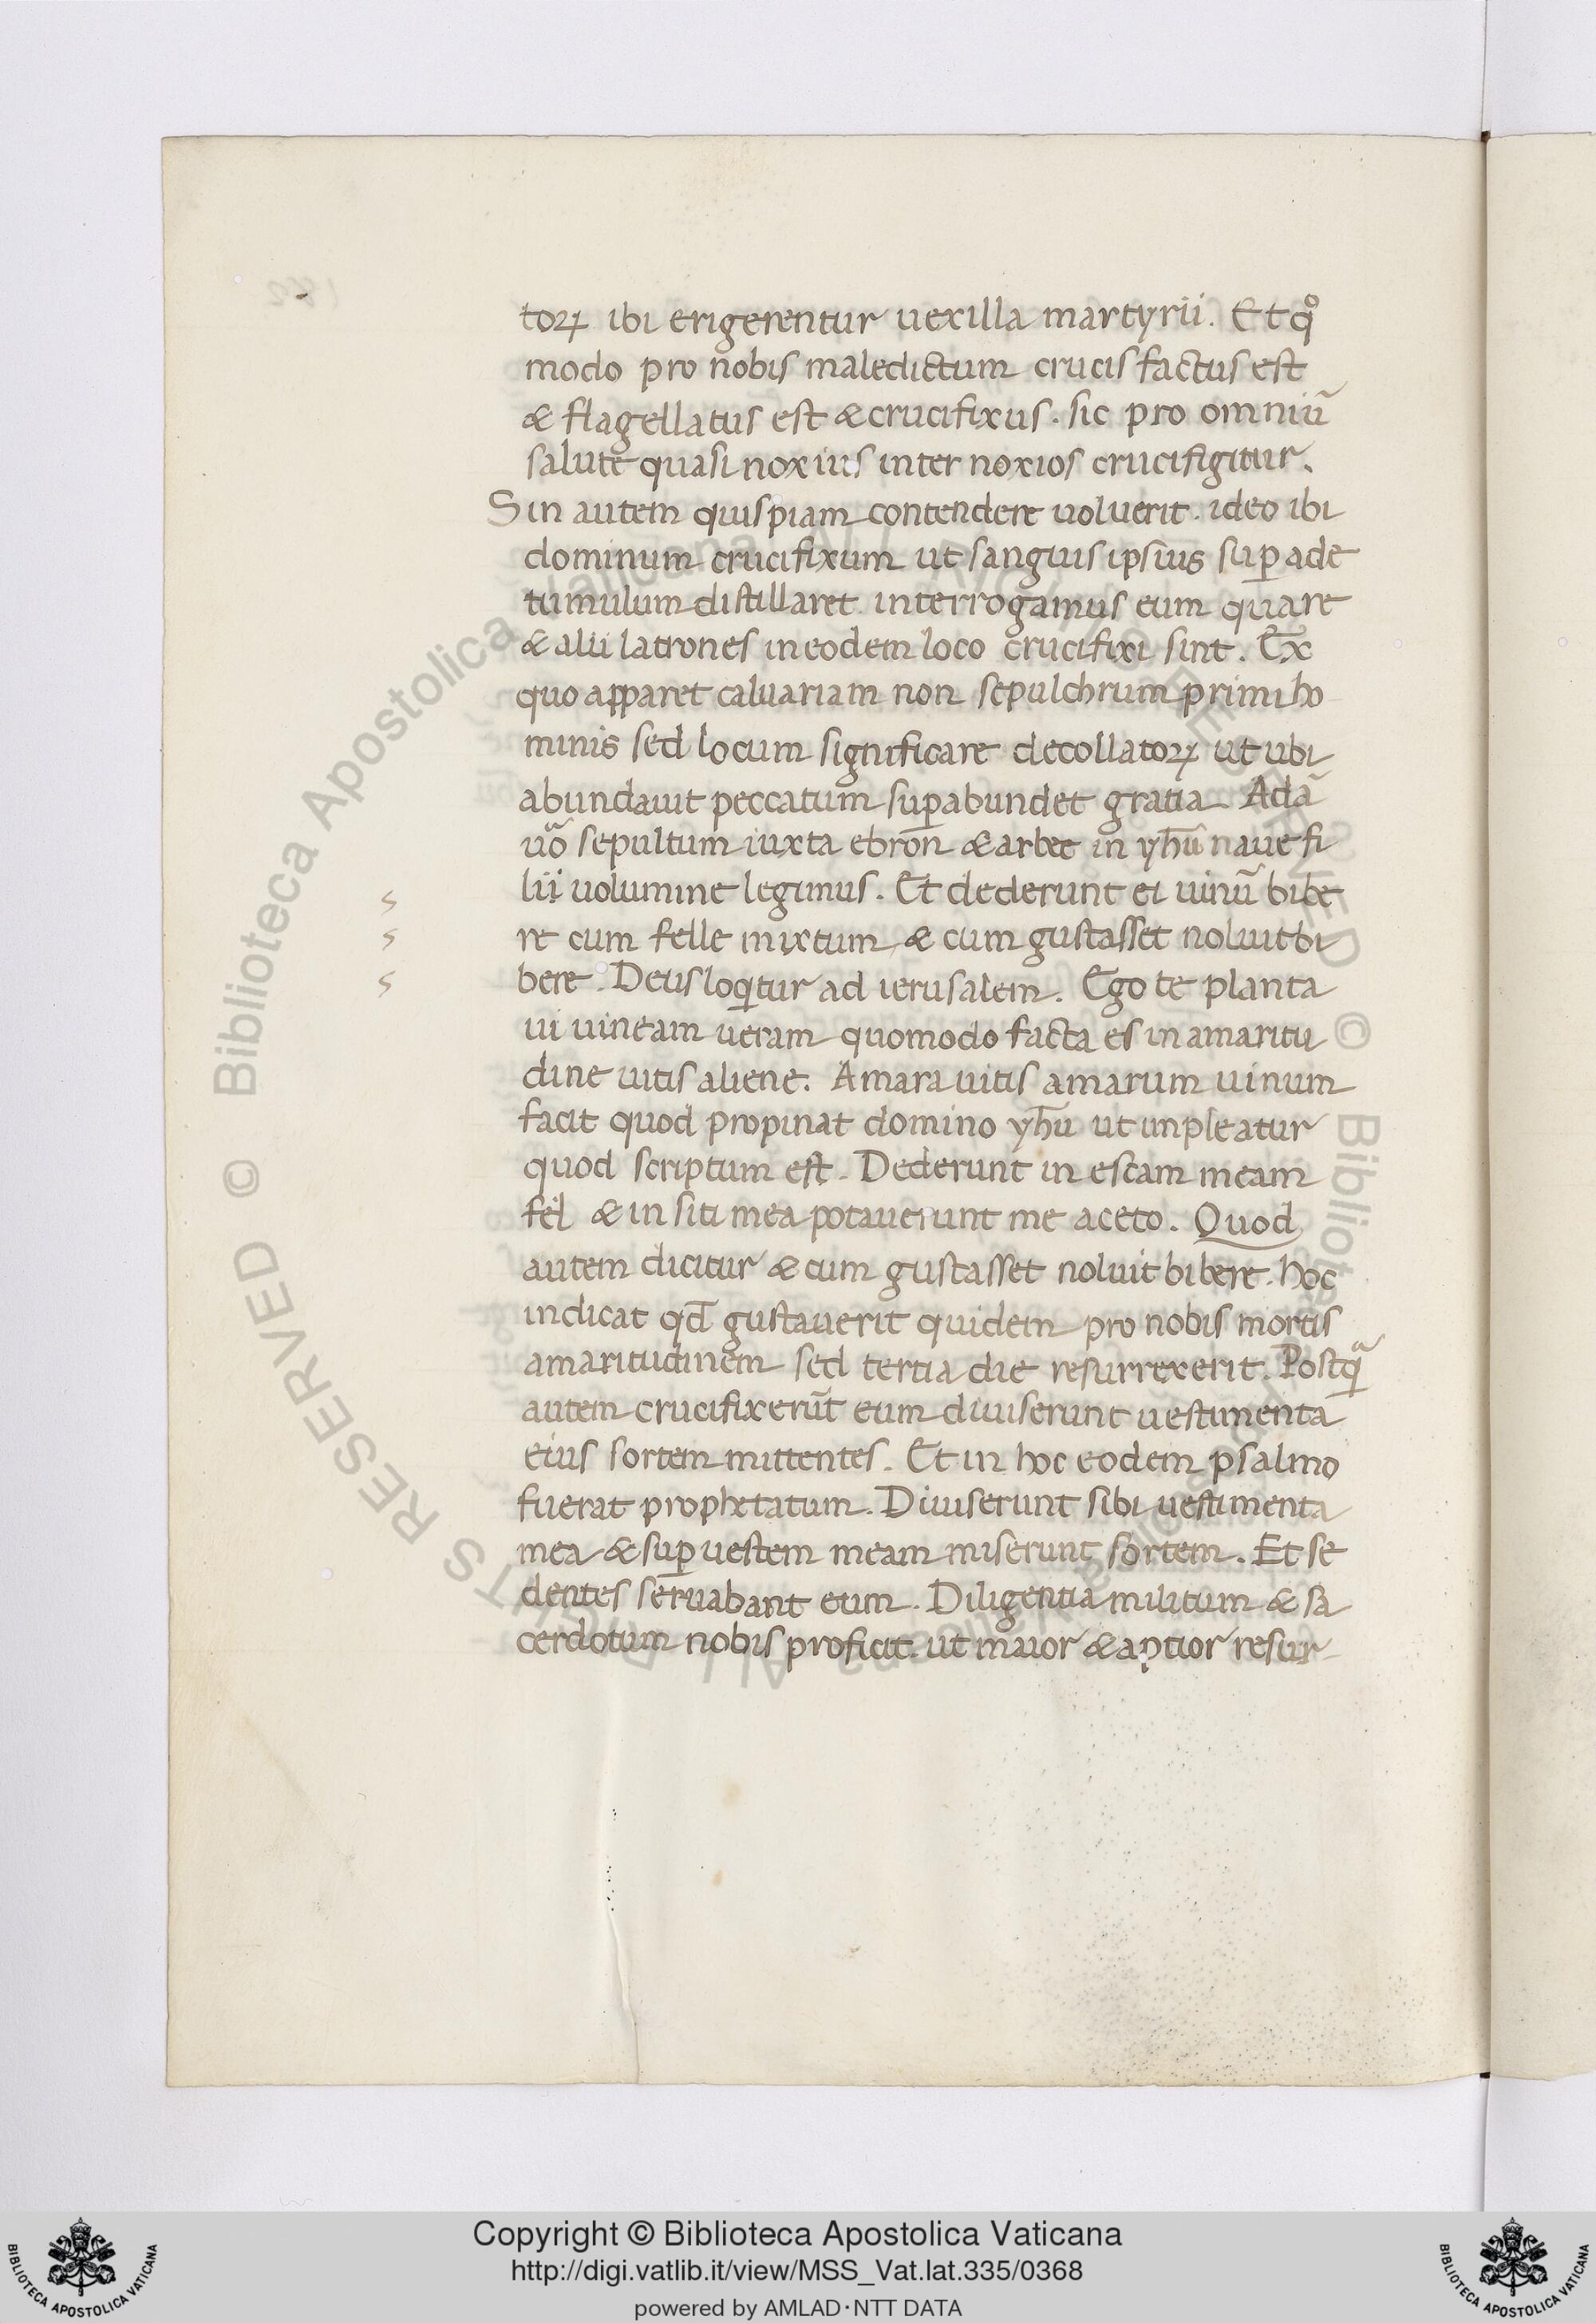 toꝝ ibi erigerentur uexilla martyrii. Et qͦ
modo pro nobis maledictum crucis factus est
& flagellatus est & crucifixus. sic pro omniū
salute quasi noxius inter noxios crucifigitur.
Sin autem quispiam contendere uoluerit. ideo ibi
dominum crucifixum ut sanguis ipsius suꝑ ade
tumulum distillaret. interrogamus eum quare
& alii latrones in eodem loco crucifixi sint. Ex
quo apparet caluariam non sepulchrum primi ho
minis sed locum significare decollatoꝝ ut ubi
abundauit peccatum suꝑabundet gratia. Adā
uō sepultum iuxta ebron & arbee in yhū naue fi
lii uolumine legimus. Et dederunt ei uinū bibe
re cum felle mixtum & cum gustasset noluit bi
bere. Deus loqitur ad ierusalem. Ego te planta
ui uineam ueram quomodo facta es in amaritu
dine uitis aliene. Amara uitis amarum uinum
facit quod propinat domino yhū ut impleatur
quod scriptum est. Dederunt in escam meam
fel & in siti mea potauerunt me aceto. Quod
autem dicitur & cum gustasset noluit bibere. hoc
indicat qd̄ gustauerit quidem pro nobis mortis
amaritudinem sed tertia die resurrexerit. Postqᷓ
autem crucifixerūt eum diuiserunt uestimenta
eius sortem mittentes. Et in hoc eodem psalmo
fuerat prophetatum. Diuiserunt sibi uestimenta
mea & suꝑ uestem meam miserunt sortem. Et se
dentes seruabant eum. Diligentia militum & sa
cerdotum nobis proficit. ut maior & aptior resur
Copyright © Biblioteca Apostolica Vaticana
http://digi.vatlib.it/view/MSS_Vat.lat.335/0368
powered by AMLAD·NTT DATA